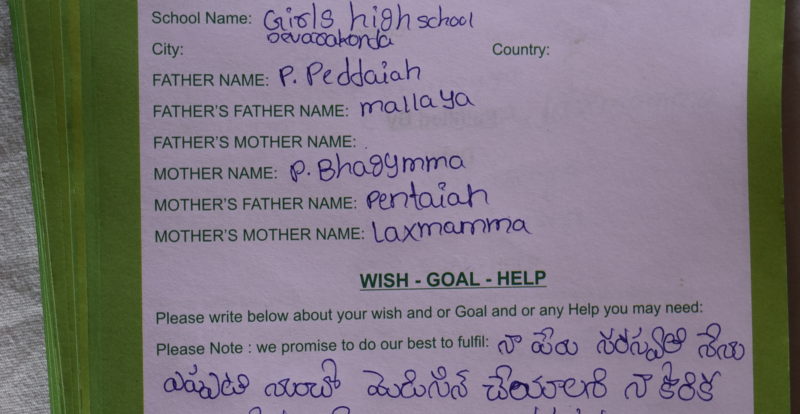 School Name: Girls high school
Devarakonda
City: Country:
FATHER NAME: P. Peddaiah
FATHER'S FATHER NAME: mallaya
FATHER'S MOTHER NAME:
MOTHER NAME: P. Bhagymma
MOTHER'S FATHER NAME: Pentaiah
MOTHER'S MOTHER NAME: Laxmamma
WISH - GOAL - HELP
Please write below about your wish and or Goal and or any Help you may need:
Please Note : we promise to do our best to fulfil: నా పేరు సరస్వతి నేను
ఎప్పటి నుంచో మెడిసిన్ చేయాలని నా కోరిక